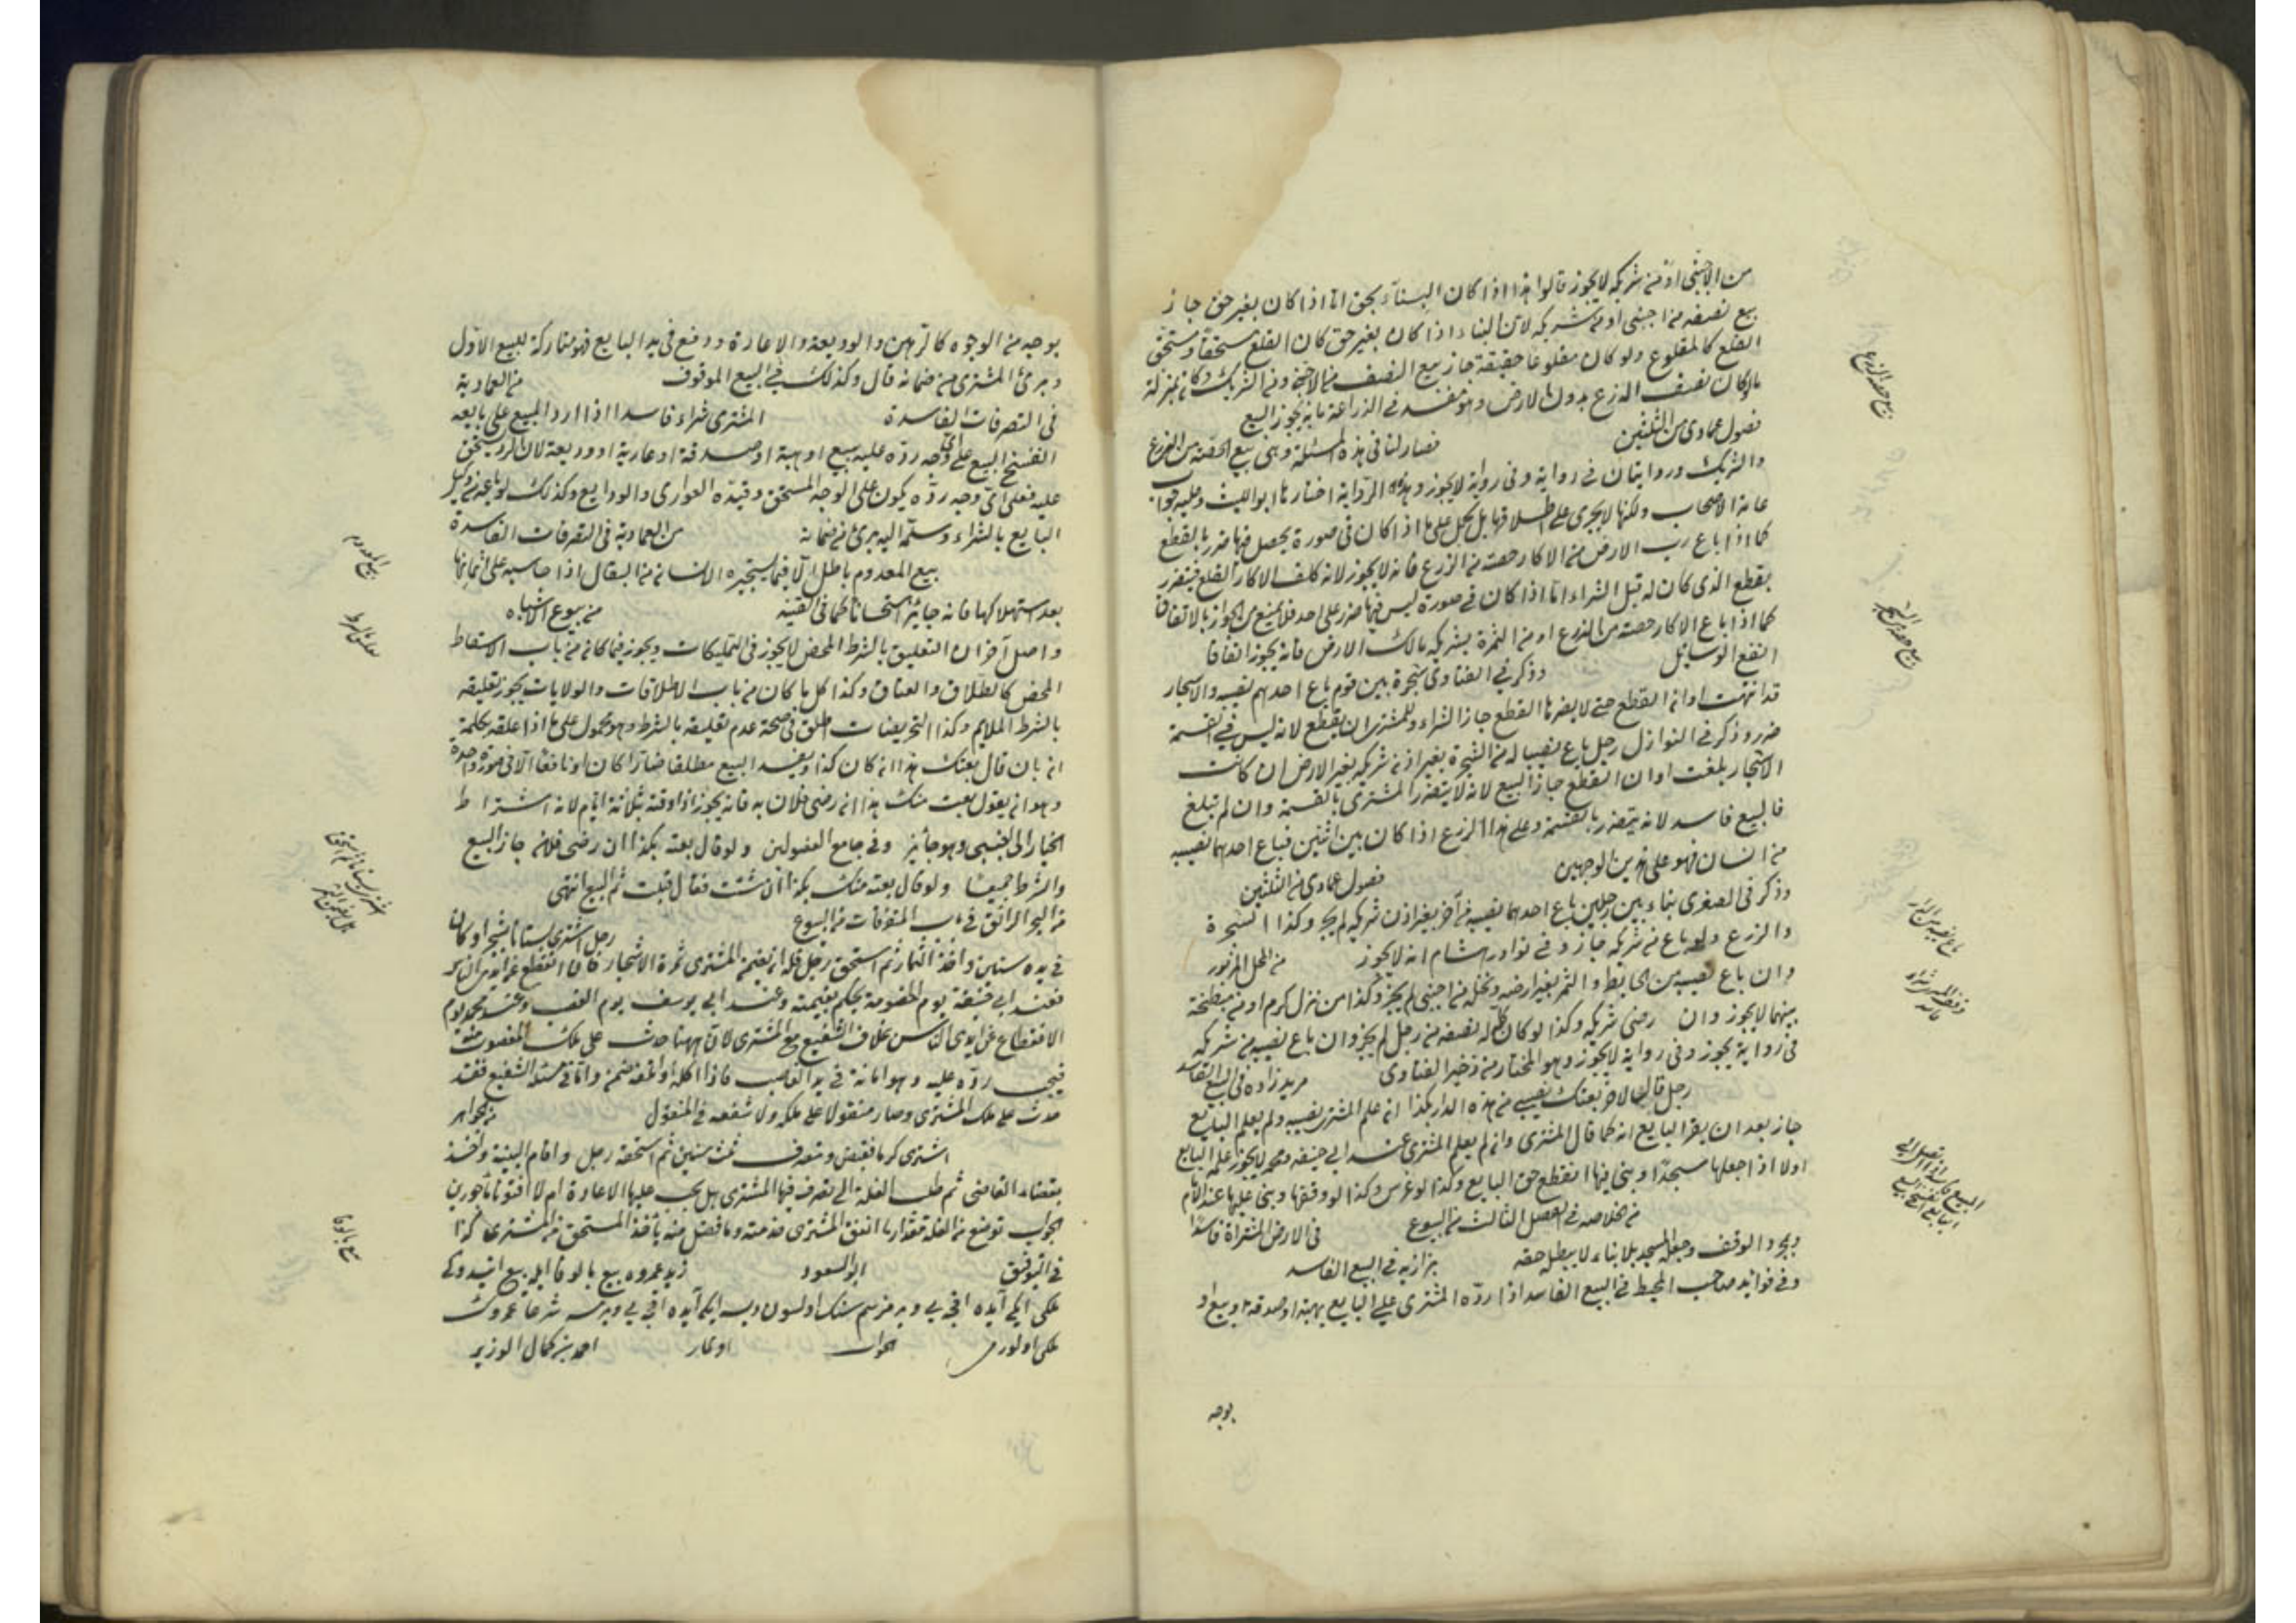 من الاجنبى او من شريكه لا يجوز قالوا هذا اذا كان البناء بحق اما اذا كان بغير حق جاز
بيع نصيفه من اجنبى او من شريكه لان البناء اذا كان بغير حق كان القلع مستحقا ومستحق
القلع كالمقلوع ولو كان مقلوعا حقيقة جاز بيع النصف من الاجنبى ومن الشريك وكان بمنزلة
ما لو كان نصف الزرع بدون الارض وهو متعد فى الزراعة فانه يجوز البيع
فصول عمادى من الثلثين فصار لنا فى هذه المسئلة وهى بيع الحصة من الزرع
والشريك وروايتان فى رواية وفى رواية لا يجوز وهذه الرواية اختارها ابو الليث وعليه جواب
عامة الاصحاب ولكنها لا يجرى على اطلاقها بل يحمل على ما اذا كان فى صورة يحصل فيها ضرر بالقطع
كما اذا باع رب الارض من الاكار حصته من الزرع فانه لا يجوز لانه كلف الاكار القلع فيتضرر
بقطع الذى كان له قبل الشراء اما اذا كان فى صورة ليس فيها ضرر على احد فلا يمنع من الجواز بالاتفاق
كما اذا باع الاكار حصته من الزرع او من الثمرة بشريكه مالك الارض فانه يجوز اتفاقا
انفع الوسائل وذكر فى الفتاوى شجرة بين قوم باع احدهم نصيبه والاشجار
قد انتهت اوان القطع حتى لا يضرها القطع جاز الشراء وللمشترى ان يقطع لانه ليس فى القسمة
ضرر وذكر فى النوازل رجل باع نصيبا له من الشجرة بغير اذن شريكه بغير الارض ان كانت
الاشجار بلغت اوان القطع جاز البيع لانه لا يتضرر المشترى بالقسمة وان لم تبلغ
فالبيع فاسد لانه يتضرر بالقسمة وعلى هذا الزرع اذا كان بين اثنين فباع احدهما نصيبه
من انسان فهو على هذين الوجهين فصول عمادى من الثلثين
وذكر فى الصغرى بناء بين رجلين باع احدهما نصيبه من آخر بغير اذن شريكه لم يجز وكذا الشجرة
والزرع ولو باع من شريكه جاز وفى نوادر هشام انه لا يجوز من المحل المزبور
وان باع نصيبه من الحايط والثمر بغير ارضه ونخله من اجنبى لم يجز وكذا من نزل كرم او من مبطخة
بينهما لا يجوز وان رضى شريكه وكذا لو كان كله له نصيفه من رجل لم يجز وان باع نصيبه من شريكه
فى رواية يجوز وفى رواية لا يجوز وهو المختار من ذخير الفتاوى مريد زاده فى البيع الفاسد
رجل قال لآخر بعتك نصيبى من هذه الدار بكذا ان علم المشترى نصيبه ولم يعلم البايع
جاز بعد ان يقر البايع انه كما قال المشترى وان لم يعلم المشترى عند ابى حنيفه ومحمد لا يجوز علم البايع
اولا اذا جعلها مسجدا او بنى فيها انقطع حق البايع وكذا لو غرس وكذا لو وقفها وبنى عليها عند الامام
من الخلاصه فى الفصل الثالث من البيوع فى الارض المشتراة فاسدا
وبمجرد الوقف وجعله المسجد بلا بناء لا يبطل حقه بزازيه فى البيع الفاسد
وفى فوائد صاحب المحيط فى البيع الفاسد اذا رده المشترى على البايع بهبة او صدقه او بيع او
بوجه
بيع حصه الزرع
بيع حصه من الشجر
باع نصيبه من الدار
بوجه من الوجوه كالرهن والوديعة والاعارة ووقع فى يد البايع فهو متاركة للبيع الاول
وبرئ المشترى من ضمانه قال وكذلك فى البيع الموقوف من العمادية
فى التصرفات الفاسدة المشترى شراء فاسدا اذا رد المبيع على بايعه
انفسخ البيع على اى وجه رده عليه ببيع او هبة او صدقة او عارية او وديعة لان الرد يستحق
عليه فعلى اى وجه رده يكون على الوجه المستحق وقيده العوارى والودايع وكذلك لو باعه من وكيل
البايع بالشراء وسلمه اليه برئ من ضمانه من العمادية فى التصرفات الفاسدة
بيع المعدوم باطل الا فيما يستجره الانسان من البقال اذا حاسبه على اثمانها
بعد استهلاكها فانه جائز استحسانا كما فى القنيه من بيوع الاشباه
واصل آخر ان التعليق بالشرط المحض لا يجوز فى التمليكات ويجوز فيما كان من باب الاسقاط
المحض كالطلاق والعتاق وكذا كل ما كان من باب الاطلاقات والولايات يجوز تعليقه
بالشرط الملايم وكذا التحريضات اطلق فى صحة عدم تعليقه بالشرط وهو محمول على ما اذا علقه بكلمة
ان بان قال بعتك هذا ان كان كذا ويفسد البيع مطلقا ضارا كان او نافعا الا فى صورة واحدة
وهو ان يقول بعت منك هذا ان رضى فلان به فانه يجوز اذا وقته بثلاثة ايام لانه اشتراط
الخيار الى اجنبى وهو جائز وفى جامع الفصولين ولو قال بعته بكذا ان رضى فلان جاز البيع
والشرط جميعا ولو قال بعته منك بكذا ان شئت فقال قبلت تم البيع انتهى
من البحر الرائق فى باب المتفرقات من البيوع رجل اشترى بستانا بشجر او كان
فى يده سنين واخذ الثمار ثم استحق رجل فله ان يضمن المشترى ثمرة الاشجار فان انقطع عن ايدى الناس
فعند ابى حنيفة يوم الخصومة يحكم بقيمته وعند ابى يوسف يوم الغصب وعند محمد يوم
الانقطاع عن ايدى الناس بخلاف الشفيع مع المشترى لان ههنا حدث على ملك المغصوب منه
فيجب رده عليه وهو امانة فى يد الغاصب فاذا اكله او اتلفه ضمنه واما فى مسئلة الشفيع فقد
حدث على ملك المشترى وصار منقولا على ملكه ولا شفعه فى المنقول من جواهر
اشترى كرما فقبض وتصرف ثلث سنين ثم استحقه رجل واقام البينة واخذ
بقضاء القاضى ثم طلب الغلة التى تصرف فيها المشترى هل يجب عليها الاعادة ام لا افتونا مأجورين
الجواب توضع من الغلة مقدار ما انفق المشترى خدمته وما فضل منه يأخذ المستحق من المشترى كذا
فى التوفيق ابو السعود زيد عمروه بيع بالوفا ايله بيع ايتدوكى
ملكى ايكى آيده اقچه يى ويرمزسم سنك اولسون ديسه ايكى آيده اقچه يى ويرمسه شرعا عمروك
ملكى اولورمى الجواب اولماز احمد بن كمال الوزير
بيع المعدوم
بيع بالوفا